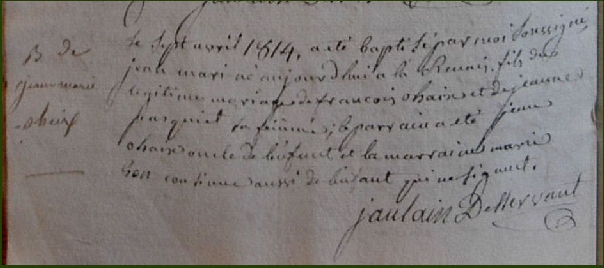 B de
jean marie
chaix
le sept avril 1814, a été baptisé par moi soussigné,
jean mari né aujourd'hui a la fils du
légitime mariage de françois chaix et de jeanne
pasquiet sa femme ; le parrain a été jean
chaix oncle de l'enfant et la marraine marie
aussi de l'enfant qui ne signent.
jaulain Desservant